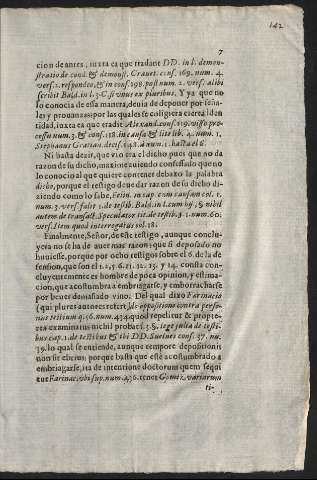 142
7
cion de antes, iuxta ea que tradunt DD. in l. demon-
stratio de cond. & demonst. Crauet. cons. 169. num. 4.
vers. 2. respondeo, & in cons. 198. post num. 2. vers. alibi
scribit Bald. in l. 3. C. si vnus ex pluribus. Y ya que no
lo conocia de essa manera, deuia de deponer por seña-
les y prouanças por las quales se coligiera cierta iden
tidad, iuxta ea que tradit Alexand. cons. 119. viso pro-
cessu num. 3. & cons. 118. in causa & lite lib. 4. num. 1,
Stephanus Gratian. decis. 198. à num. 1. hasta el 6.
Ni basta dezir, que vio tra el dicho pues que no da
razon de su dicho, maxime viendo confessado que no
lo conocio al que quiere contener debaxo la palabra
dicho, porque el testigo deue dar razon de su dicho di-
ziendo como lo sabe, Felin. in cap. cum causam col. 1.
num. 3. vers. falit 2. de testib. Bald. in l. cum hi, § nihil
autem de transact. Speculator tit. de testib. § 1. num. 60.
vers. Item quod interrogatus col. 18.
Finalmente, Señor, de este testigo, aunque conclu-
yera no se ha de auer mas razon que si deposado no
huuiesse, porque por ocho testigos sobre el 6. de la de
fension, que son el 1. 2. 5. 6. 11. 12. 13. y 14. consta con-
cluyentemente es hombre de poca opinion, y estima-
cion, que acostumbra a embriagarse, y emborracharse
por beuer demasiado vino. Del qual dixo Farinacio
(qui plures autores refert) de oppositione contra perso-
nas testium q. 56. num. 434. quod repellitur & propte-
rea examinatus nichil probat. 3. §. lege iulia de testi-
bus cap. 1. de testibus & ibi DD. Suelues cons. 37. nu.
39. lo qual se entiende, aunque tempore depositionis
non sit ebrius; porque basta que esté acostumbrado a
embriagarse, ita de intentione doctorum quem sequi
tur Farinac. vbi sup. num. 436. tenet Gomez variarum
ti-